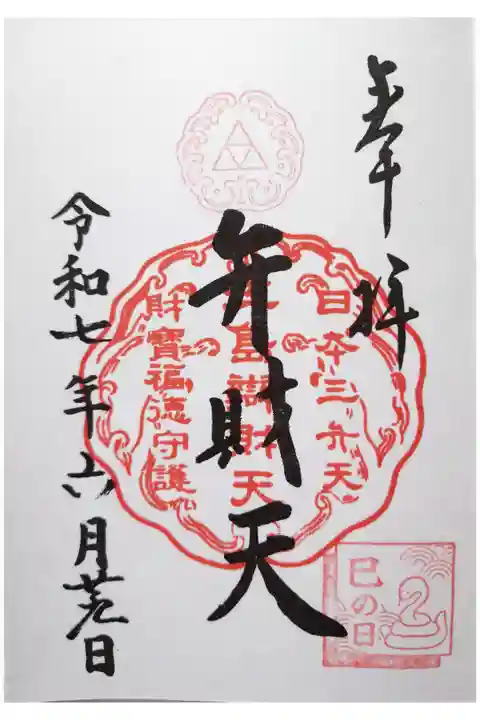 奉拝
日本三弁天
江島辨財天
財寶福徳守護
弁財天
令和七年六月廿五日
巳の日